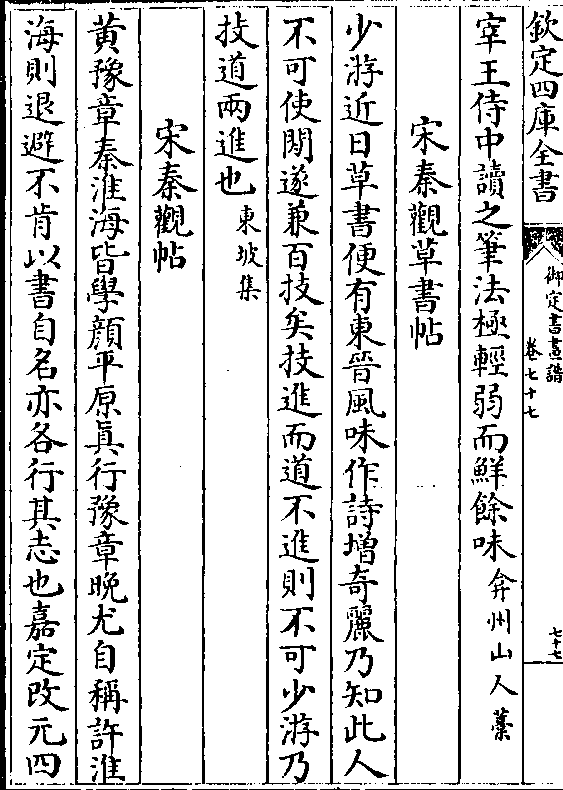 欽定四庫全書
御定書畫譜
卷七十七
七十七
宰王侍中讀之筆法極輕弱而鮮餘味弇州山人藁
宋秦觀草書帖
少游近日草書便有東晉風味作詩增奇麗乃知此人
不可使閒遂兼百技矣技進而道不進則不可少游乃
技道兩進也東坡集
宋秦觀帖
黄豫章秦淮海皆學顔平原眞行豫章晩尤自稱許淮
海則退避不肯以書自名亦各行其志也嘉定改元四